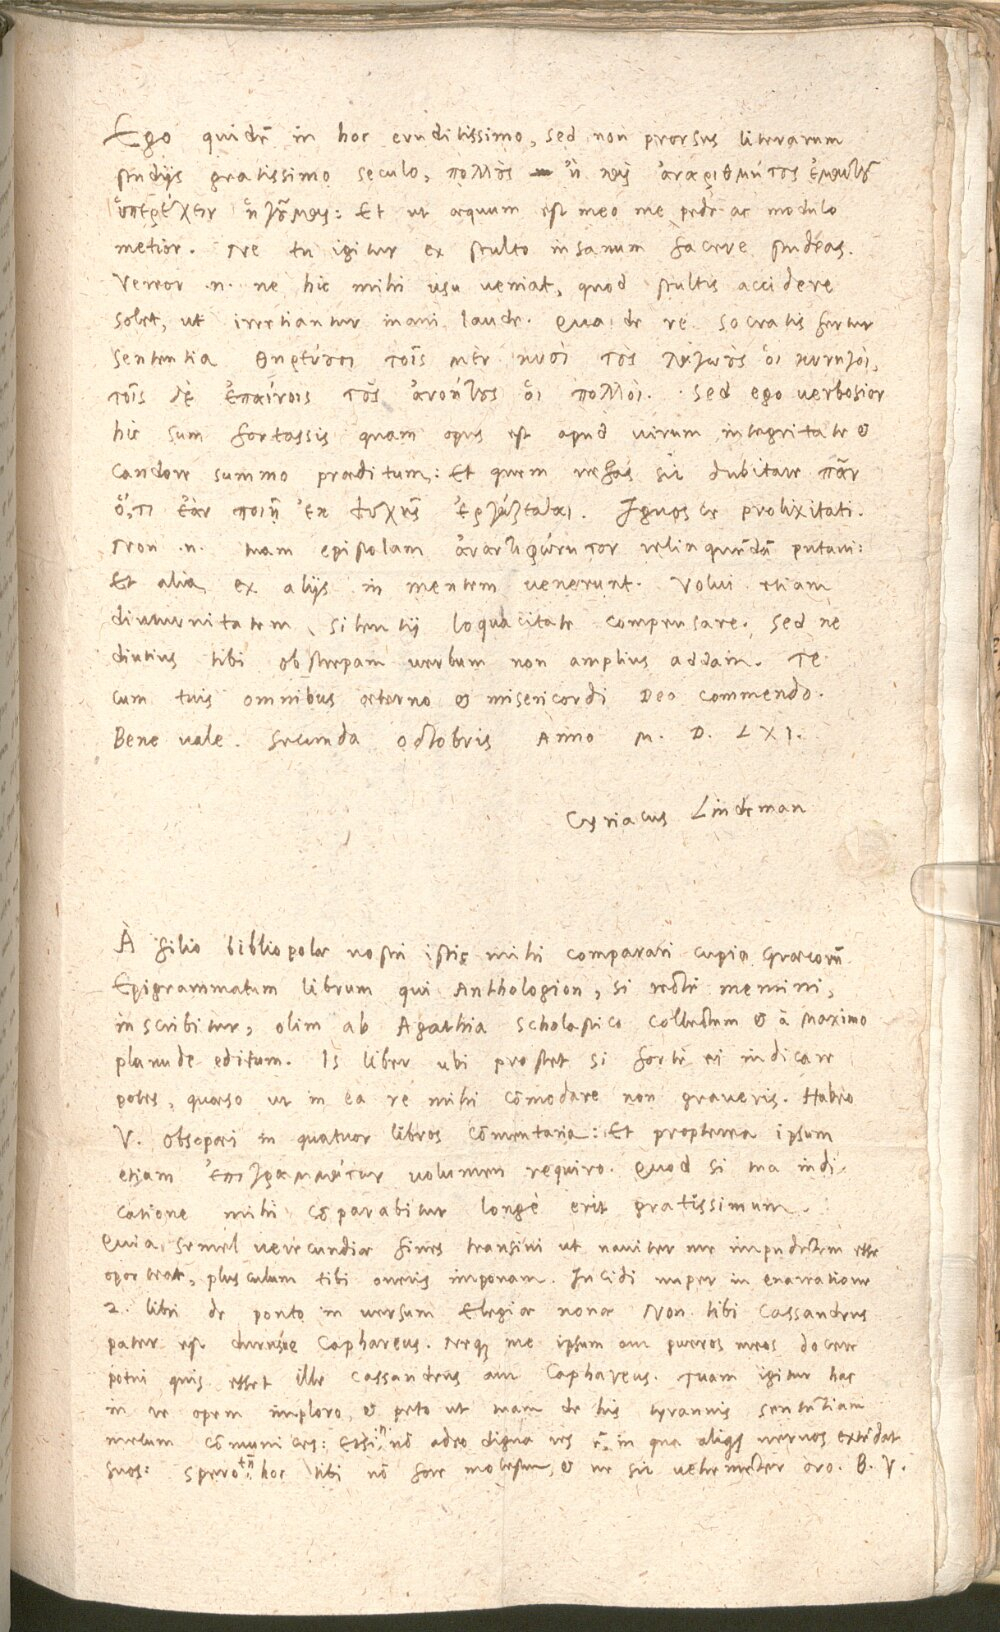 Ego quidē in hoc eruditissimo, sed non prorsus literarum
studijs gratissimo seculo, πολλοὺς ἢ καὶ ἀναριθμήτους ἐμαυτοῦ
ὑπερέχειν ἡγοῦμαι: Et ut æquum est meo me pede ac modulo
metior. Ne tu igitur ex stulto insanum facere studeas.
Vereor .n. ne hic mihi usu ueniat, quod stultis accidere
solet, ut irretiantur inani laude. Qua de re Socratis fertur
sententia θηρεύουσι τοῖς μὲν κυσὶ τοὺς λαγωοὺς οἱ κυνηγοὶ,
τοῖς δὲ ἐπαίνοις τοὺς ἀνοήτους οἱ πολλοὶ. Sed ego uerbosior
hic sum fortassis quam opus est apud uirum integritate &
candore summo præditum: Et quem nefas sit dubitare πᾶν
ὅ,τι ἐὰν ποιῇ ἐκ ψυχῆς ἐργάζεσθαι. Ignosce prolixitati.
Non .n. tuam epistolam ἀναντιφώνητον relinquendā putaui:
Et alia ex alijs in mentem uenerunt. Volui etiam
diuturnitatem silentij loquacitate compensare. Sed ne
diutius tibi obstrepam uerbum non amplius addam. Te
cum tuis omnibus æterno & misericordi Deo commendo.
Bene uale. Secunda Octobris Anno M. D. LXI.
Cyriacus Lindeman
À filio bibliopolæ uestri istic mihi comparari cupio Græcorū
Epigrammatum librum qui Anthologion, si recte memini,
inscribitur, olim ab Agathia Scholastico collectum & à Maximo
planude editum. Is liber ubi prostet si forte ei indicare
potes, quæso ut in ea re mihi cōmodare non graueris. Habeo
V. Obsopœi in quatuor libros cōmentaria: Et propterea ipsum
etiam ἐπιγραμμάτων uolumen requiro. Quod si tua indi-
catione mihi cōparabitur longè erit gratissimum.
Quia semel uerecundiæ fines transiui ut nauiter me impudentem esse
oporteat, plusculum tibi oneris imponam. Incidi nuper in enarratione
2. libri de ponto in uersum Elegiæ nonæ Non tibi Cassandreus
pater est durusue Caphareus. Neq; me ipsum aut pueros meos docere
potui quis esset ille Cassandreus aut Caphareus. Tuam igitur hac
in re opem imploro, & peto ut tuam de his tyrannis sententiam
mecum cōmunices: Etsi .n. nō adeo digna res ē, in qua aliquis neruos extendat
suos: Spero tn̄ hoc tibi nō fore molestum, & ne sit uehementer oro. B. V.